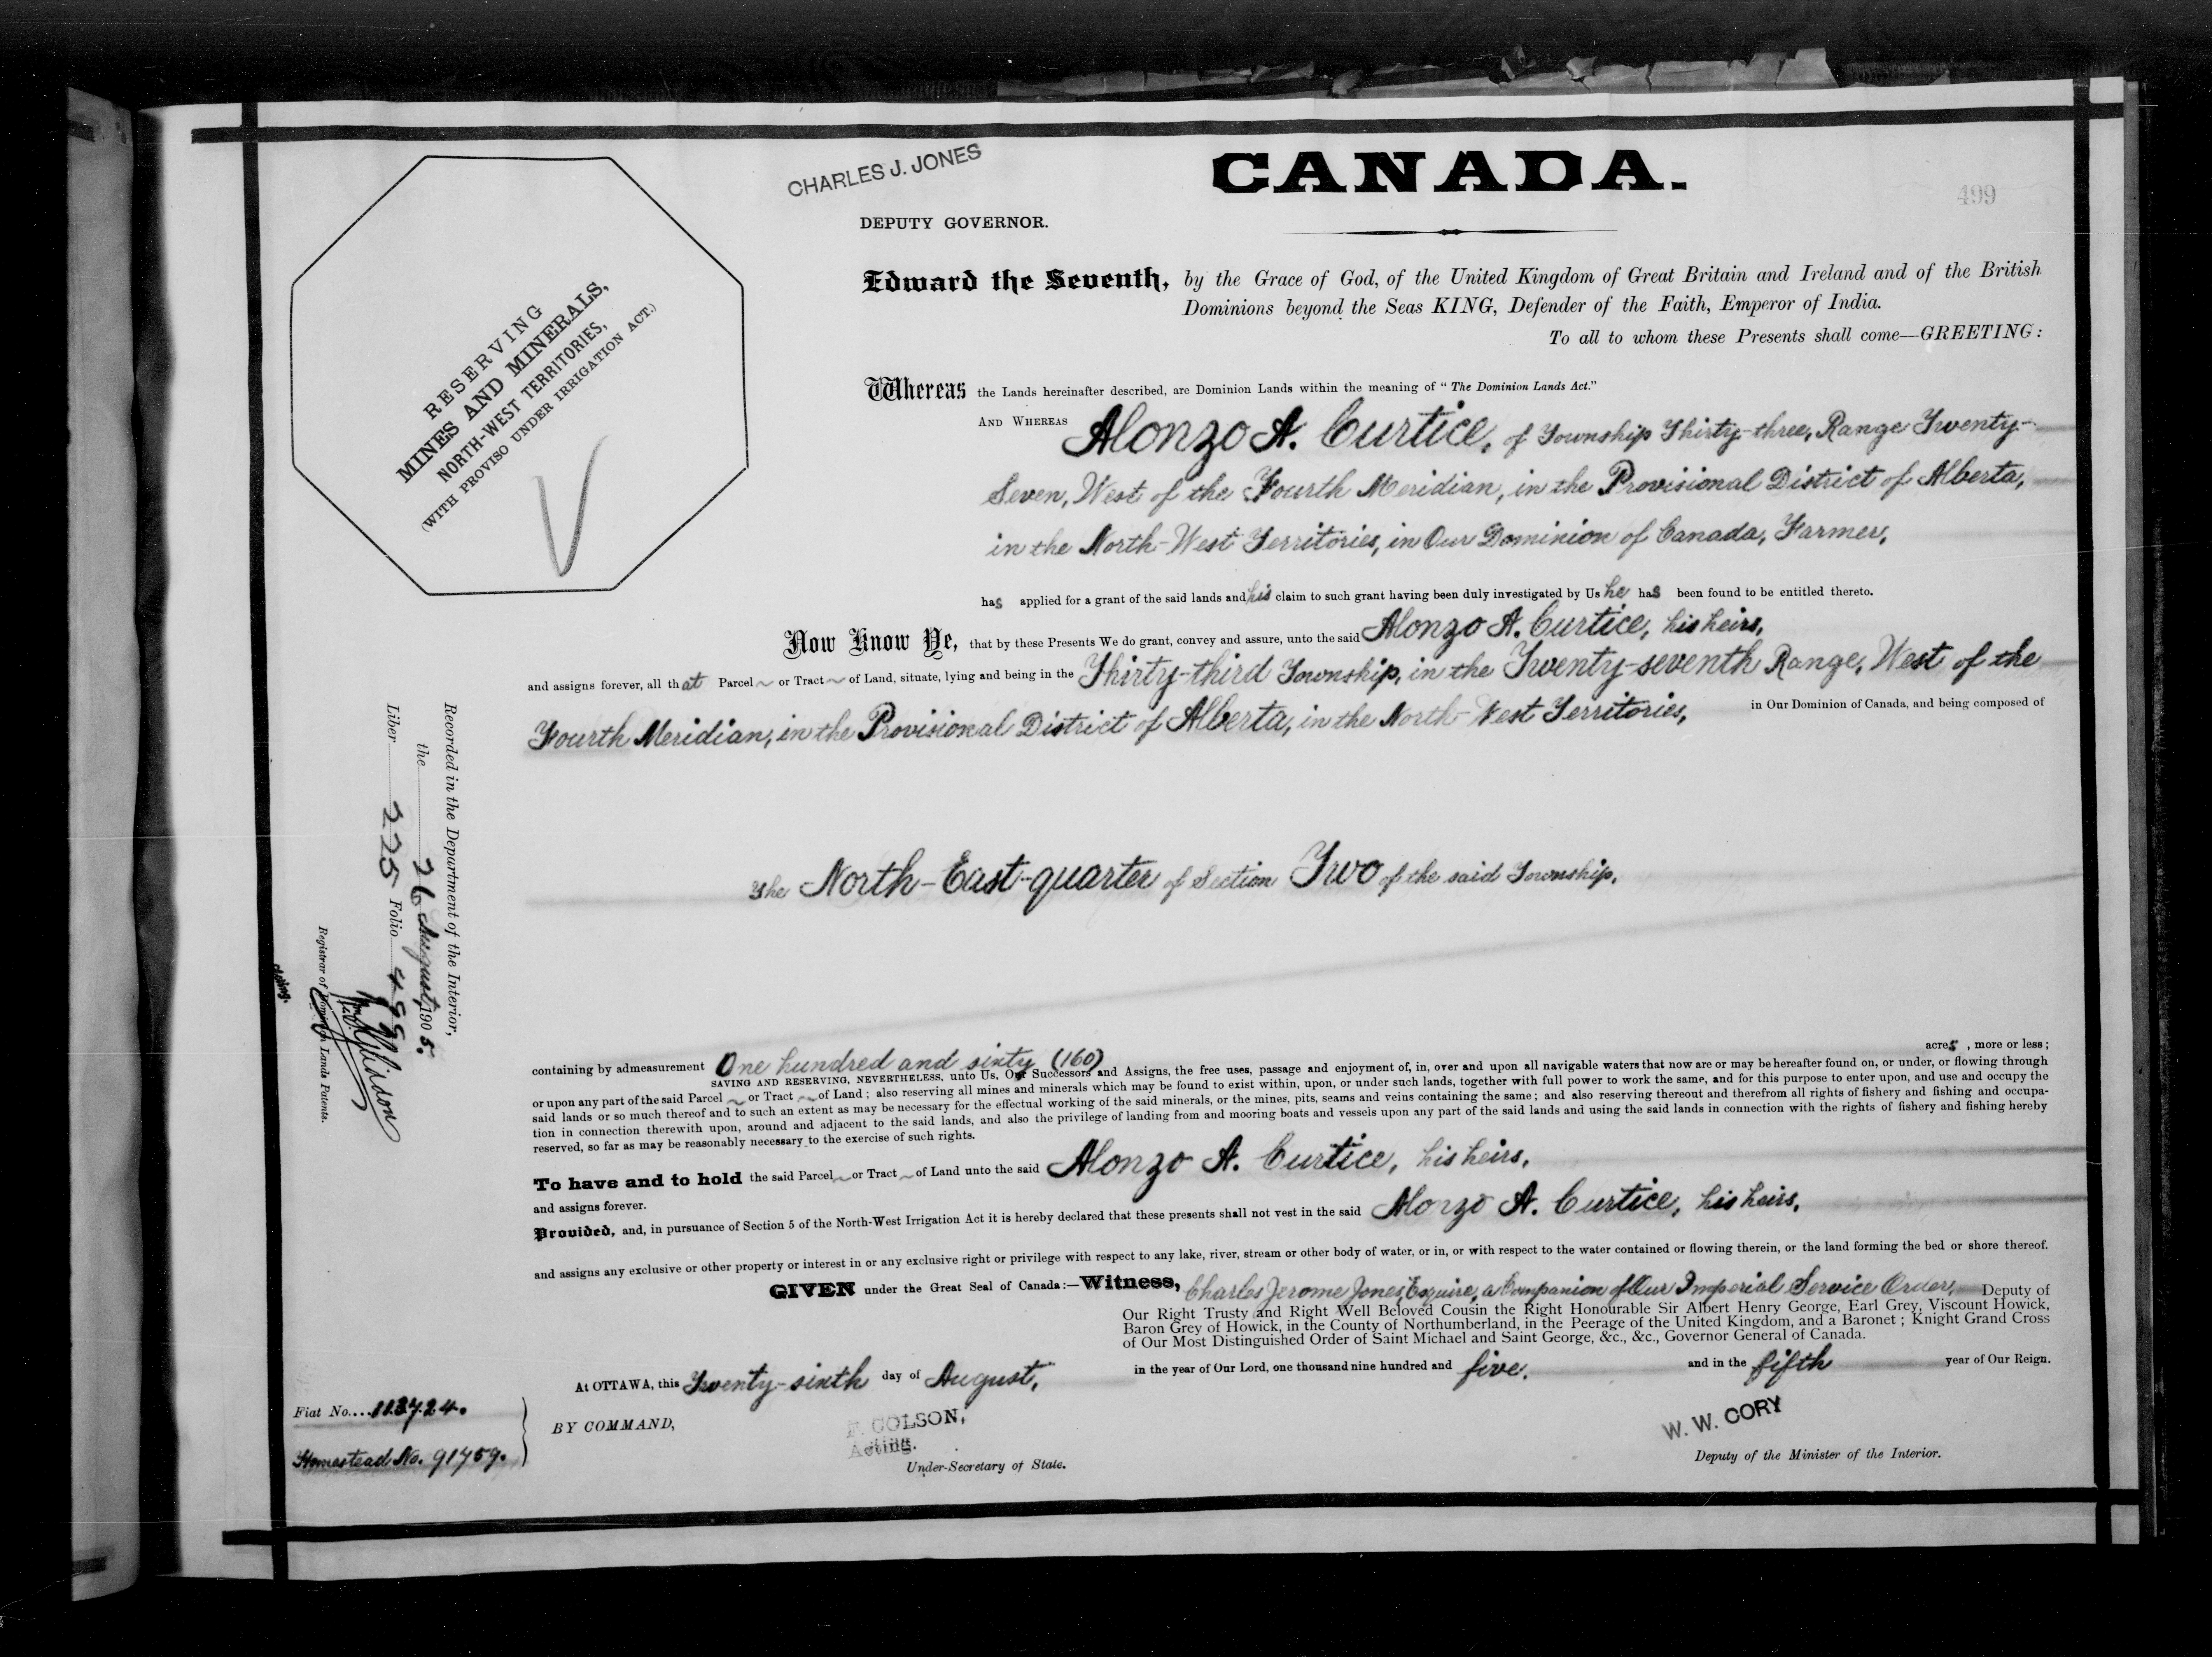 CHARLES J. JONES
CANADA.
499
DEPUTY GOVERNOR.
RESERVING
MINES AND MINERALS,
NORTH-WEST TERRITORIES,
(WITH PROVISO UNDER IRRIGATION ACT.)
Edward the Seventh, by the Grace of God, of the United Kingdom of Great Britain and Ireland and of the British
Dominions beyond the Seas KING, Defender of the Faith, Emperor of India.
To all to whom these Presents shall come—GREETING:
Whereas the Lands hereinafter described, are Dominion Lands within the meaning of "The Dominion Lands Act."
AND WHEREAS Alonzo A. Curtice, of Township Thirty-three, Range Twenty-
Seven, West of the Fourth Meridian, in the Provisional District of Alberta,
in the North-West Territories, in Our Dominion of Canada, Farmer,
has applied for a grant of the said lands and his claim to such grant having been duly investigated by Us he has been found to be entitled thereto.
Now Know Ye, that by these Presents We do grant, convey and assure, unto the said Alonzo A. Curtice, his heirs,
and assigns forever, all that Parcel or Tract of Land, situate, lying and being in the Thirty-third Township, in the Twenty-seventh Range, West of the
Fourth Meridian, in the Provisional District of Alberta, in the North-West Territories, in Our Dominion of Canada, and being composed of
The North-East-quarter of Section Two of the said Township.
Recorded in the Department of the Interior,
the 26 August, 1905.
Liber 225 Folio 499
Registrar of Dominion Lands Patents.
containing by admeasurement One hundred and sixty (160) acres, more or less;
SAVING AND RESERVING, NEVERTHELESS, unto Us, Our Successors and Assigns, the free uses, passage and enjoyment of, in, over and upon all navigable waters that now are or may be hereafter found on, or under, or flowing through
or upon any part of the said Parcel or Tract of Land; also reserving all mines and minerals which may be found to exist within, upon, or under such lands, together with full power to work the same, and for this purpose to enter upon, and use and occupy the
said lands or so much thereof and to such an extent as may be necessary for the effectual working of the said minerals, or the mines, pits, seams and veins containing the same; and also reserving thereout and therefrom all rights of fishery and fishing and occupa-
tion in connection therewith upon, around and adjacent to the said lands, and also the privilege of landing from and mooring boats and vessels upon any part of the said lands and using the said lands in connection with the rights of fishery and fishing hereby
reserved, so far as may be reasonably necessary to the exercise of such rights.
To have and to hold the said Parcel or Tract of Land unto the said Alonzo A. Curtice, his heirs,
and assigns forever.
Provided, and, in pursuance of Section 5 of the North-West Irrigation Act it is hereby declared that these presents shall not vest in the said Alonzo A. Curtice, his heirs,
and assigns any exclusive or other property or interest in or any exclusive right or privilege with respect to any lake, river, stream or other body of water, or in, or with respect to the water contained or flowing therein, or the land forming the bed or shore thereof.
GIVEN under the Great Seal of Canada:—Witness, Charles Jerome Jones, Esquire, a Companion of Our Imperial Service Order, Deputy of
Our Right Trusty and Right Well Beloved Cousin the Right Honourable Sir Albert Henry George, Earl Grey, Viscount Howick,
Baron Grey of Howick, in the County of Northumberland, in the Peerage of the United Kingdom, and a Baronet; Knight Grand Cross
of Our Most Distinguished Order of Saint Michael and Saint George, &c., &c., Governor General of Canada.
At OTTAWA, this Twenty-sixth day of August, in the year of Our Lord, one thousand nine hundred and five. and in the fifth year of Our Reign.
Fiat No. 113724.
Homestead No. 91759.
BY COMMAND,
P. COLSON,
Acting.
Under-Secretary of State.
W. W. CORY
Deputy of the Minister of the Interior.